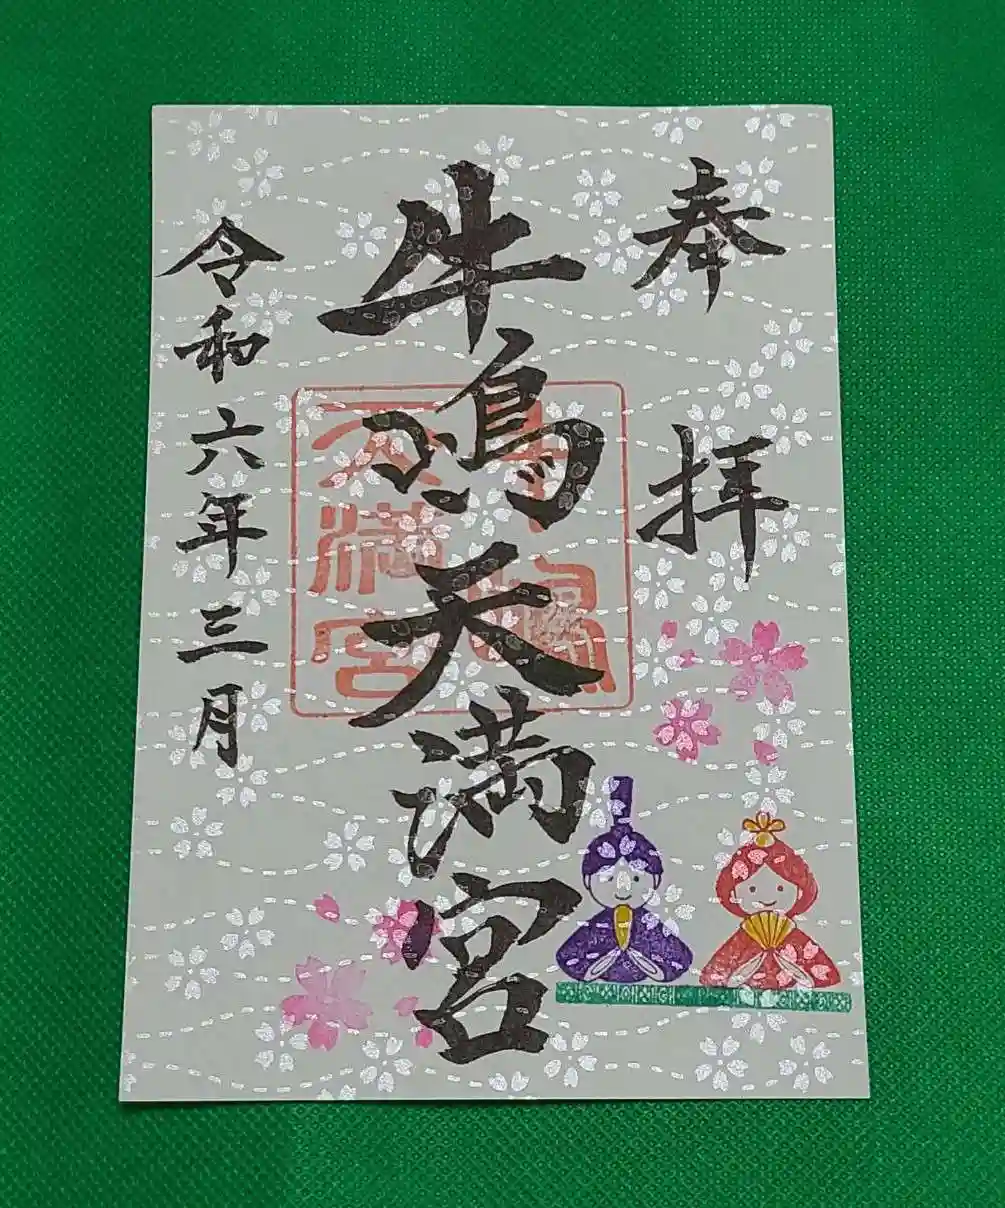 奉拝
牛嶋天満宮
牛嶋
天満宮
令和六年三月